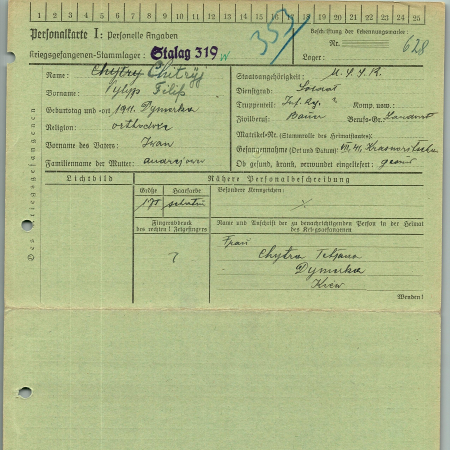 1 2 3 4 5 6 7 8 9 10 11 12 13 14 15 16 17 18 19 20 21 22 23 24 25
Personalkarte I: Personelle Angaben
Kriegsgefangenen-Stammlager: Stalag 319
353
Beschriftung der Erkennungsmarke:
Nr. 628
Lager:
Des Kriegsgefangenen
Name: Chytry Chitryj
Vorname: Pylyp Filip
Geburtstag und -ort 1911. Dymerka
Religion: orthodox
Vorname des Vaters: Iwan
Familienname der Mutter:
Staatsangehörigkeit: U.S.S.R.
Dienstgrad: Soldat
Truppenteil: Inf. Rgt. ? Komp. usw.:
Zivilberuf: Bauer Berufs-Gr.:
Matrikel-Nr. (Stammrolle des Heimatstaates):
Gefangennahme (Ort und Datum):
Ob gesund, krank, verwundet eingeliefert: gesund
Lichtbild
Nähere Personalbeschreibung
Größe
Haarfarbe
Besondere Kennzeichen:
Fingerabdruck
des rechten! Zeigefingers
?
Name und Anschrift der zu benachrichtigenden Person in der Heimat
des Kriegsgefangenen
Frau
Chytra Tetjana
Dymerka
Kiew
Wenden!